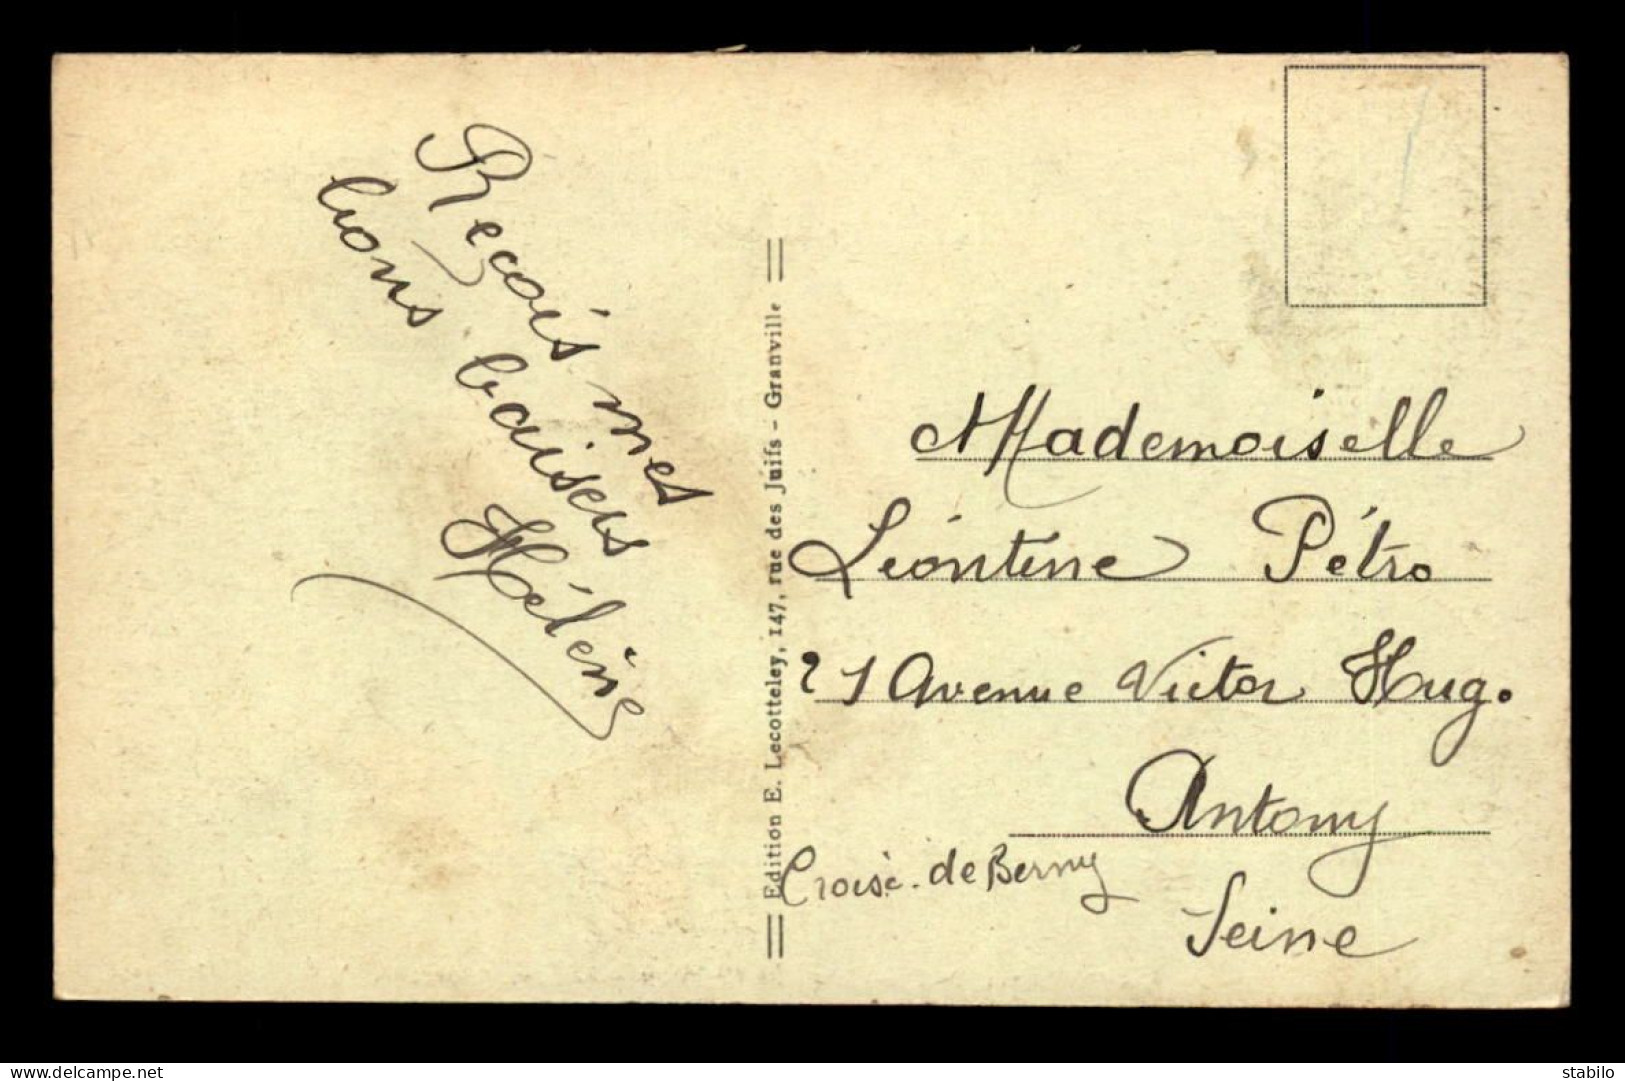 Reçois mes
bons baisers
Hélène
Edition E. Lecotteley, 147, rue des Juifs - Granville
Mademoiselle
Léontine Pétro
21 Avenue Victor Hug.
Antony
Croisé. de Berny
Seine
delcampe.net
stabilo